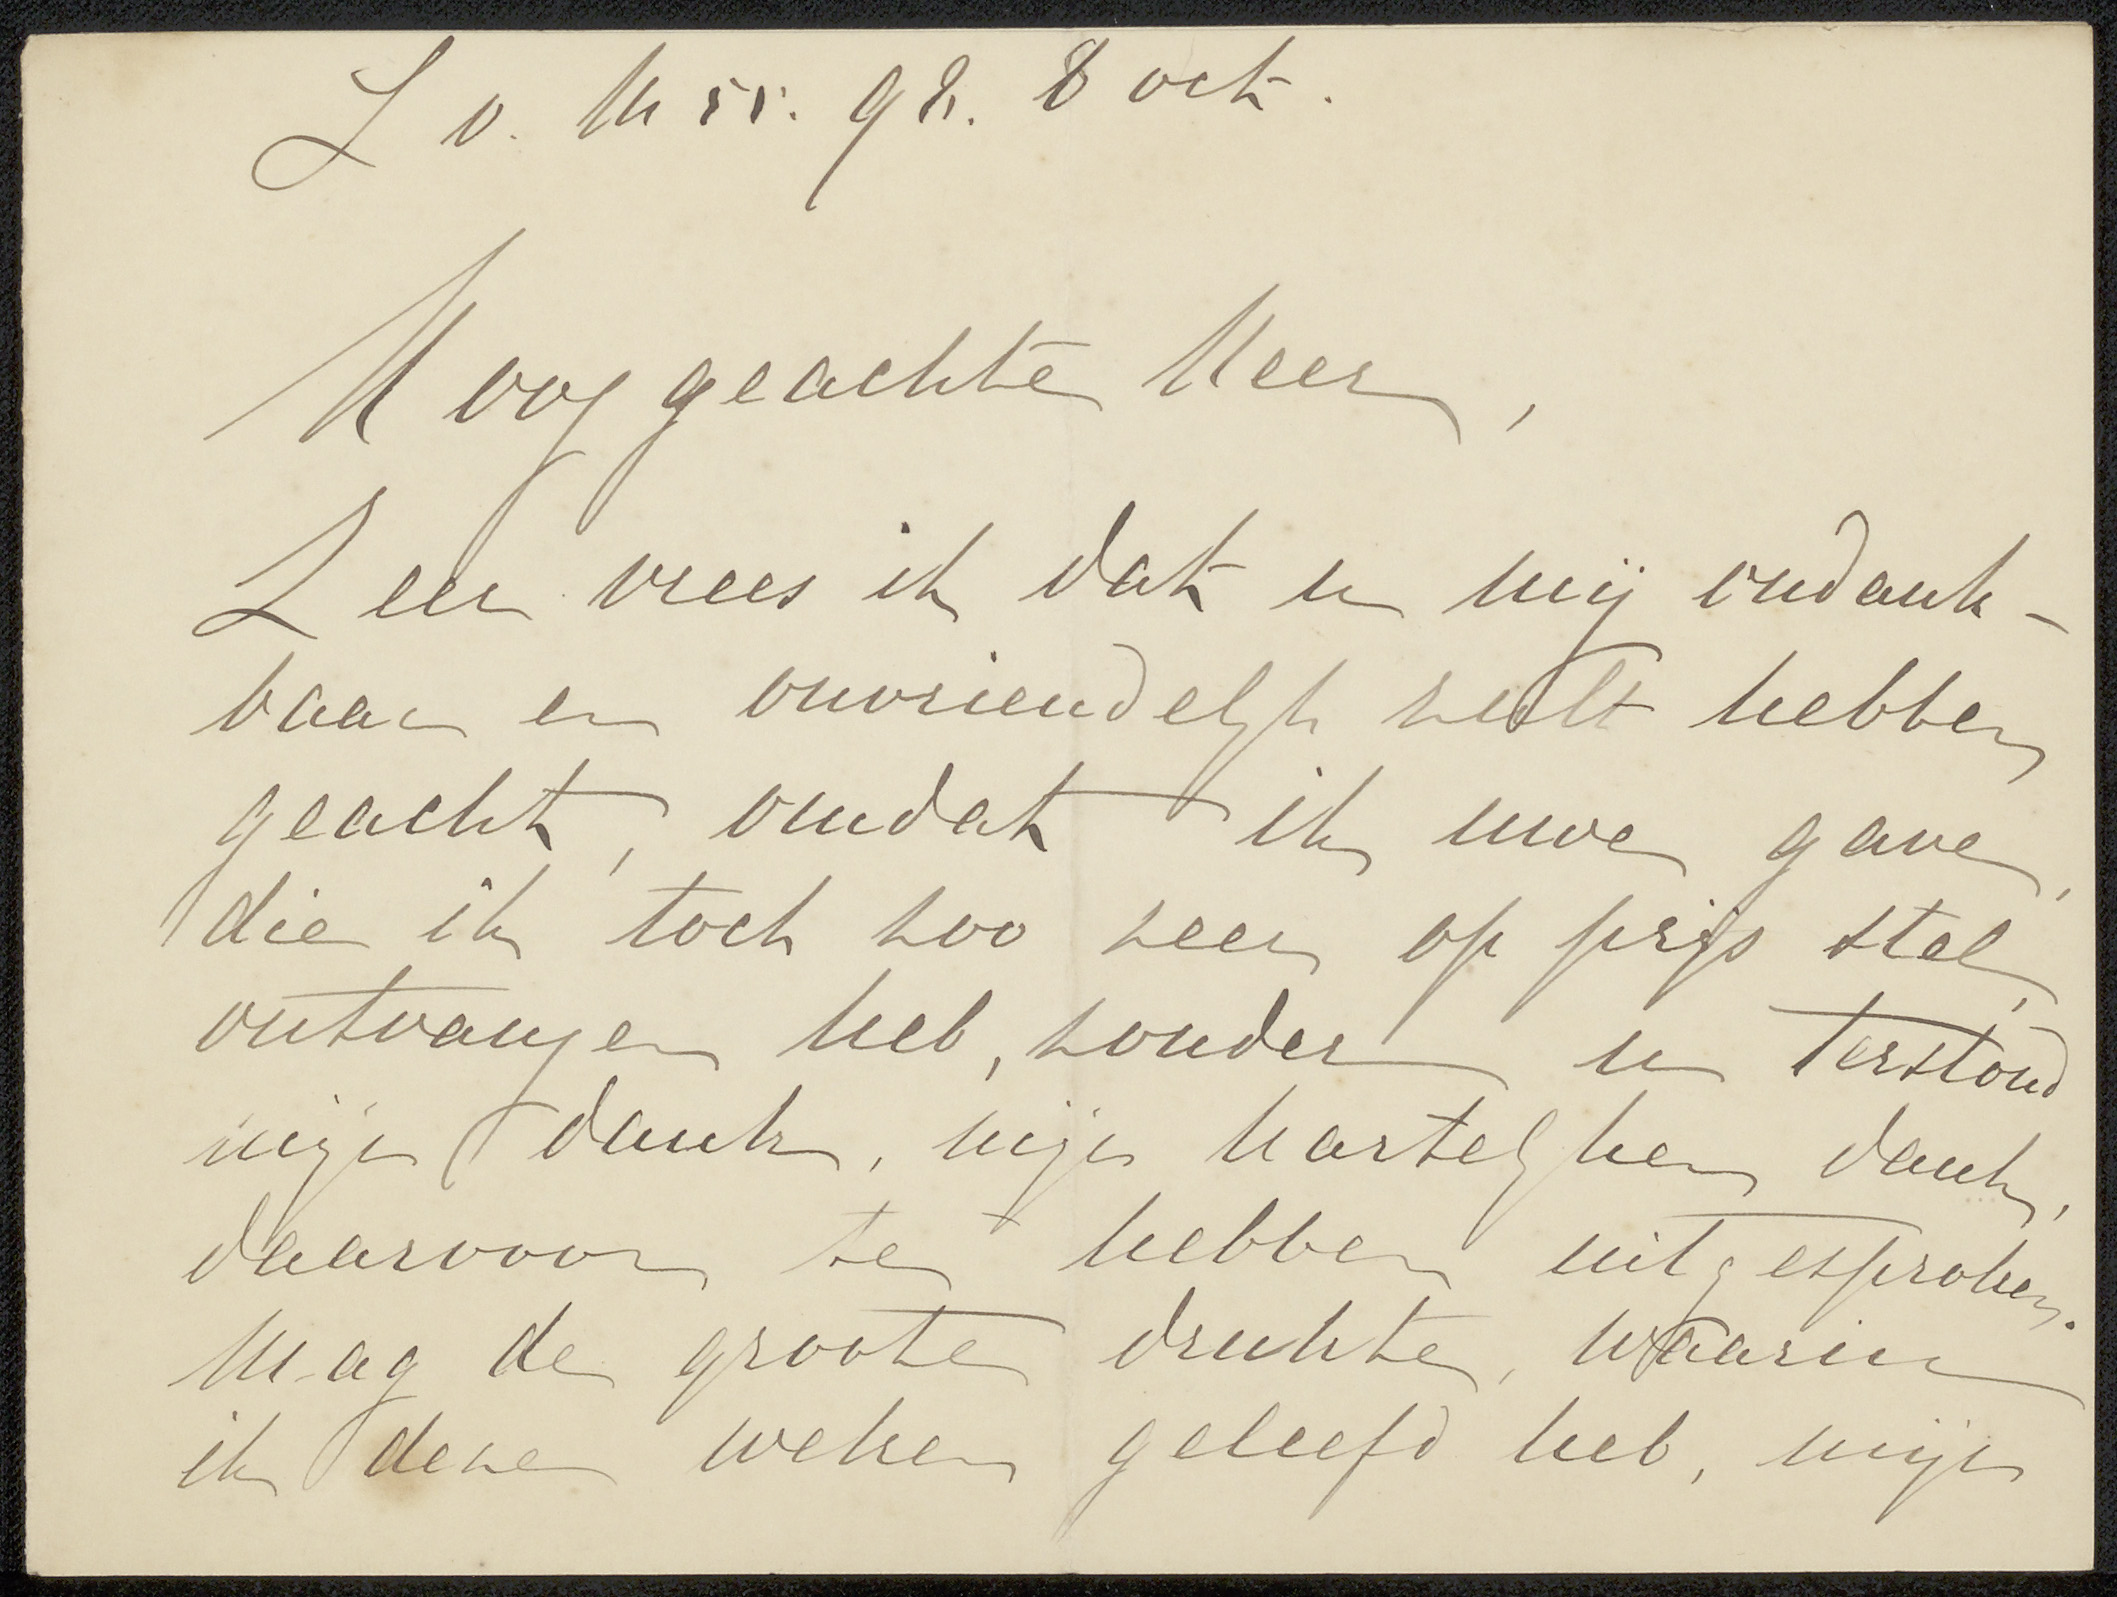 L v. M 55. 98. 8 oct.
Hooggeachte Heer,
Zeer vrees ik dat u mij ondank-
baar en onvriendelijk zult hebben
geacht, omdat ik uwe gave,
die ik toch zoo zeer op prijs stel,
ontvangen heb, zonder u terstond
mijn dank, mijn hartelijken dank,
daarvoor te hebben uitgesproken.
Mag de groote drukte, waarin
ik deze weken geleefd heb, mijn